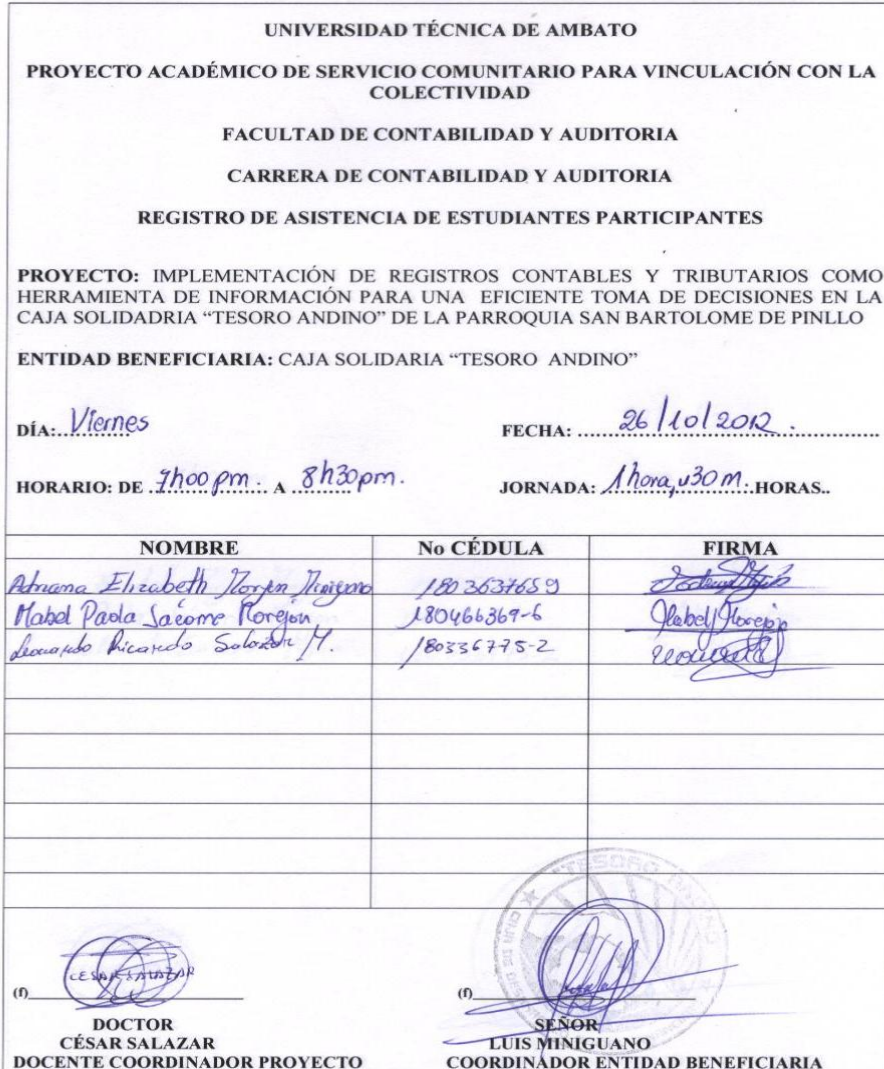 UNIVERSIDAD TÉCNICA DE AMBATO
PROYECTO ACADÉMICO DE SERVICIO COMUNITARIO PARA VINCULACIÓN CON LA
COLECTIVIDAD
FACULTAD DE CONTABILIDAD Y AUDITORIA
CARRERA DE CONTABILIDAD Y AUDITORIA
REGISTRO DE ASISTENCIA DE ESTUDIANTES PARTICIPANTES
PROYECTO: IMPLEMENTACIÓN DE REGISTROS CONTABLES Y TRIBUTARIOS COMO
HERRAMIENTA DE INFORMACIÓN PARA UNA EFICIENTE TOMA DE DECISIONES EN LA
CAJA SOLIDADRIA “TESORO ANDINO” DE LA PARROQUIA SAN BARTOLOME DE PINLLO
ENTIDAD BENEFICIARIA: CAJA SOLIDARIA “TESORO ANDINO”
DÍA: Viernes FECHA: 26/10/2012.
HORARIO: DE 7h00 pm. A 8h30pm. JORNADA: 1hora, 30 m. HORAS..
NOMBRE No CÉDULA FIRMA
Adriana Elizabeth 1803637659
Mabel Paola Jácome Morejón 180466369-6 Mabel Morejón
Leonardo Ricardo Salazar M. 18033677S-2
TESORO ANDINO
CESAR SALAZAR
(f) (f)
DOCTOR SEÑOR
CÉSAR SALAZAR LUIS MINIGUANO
DOCENTE COORDINADOR PROYECTO COORDINADOR ENTIDAD BENEFICIARIA